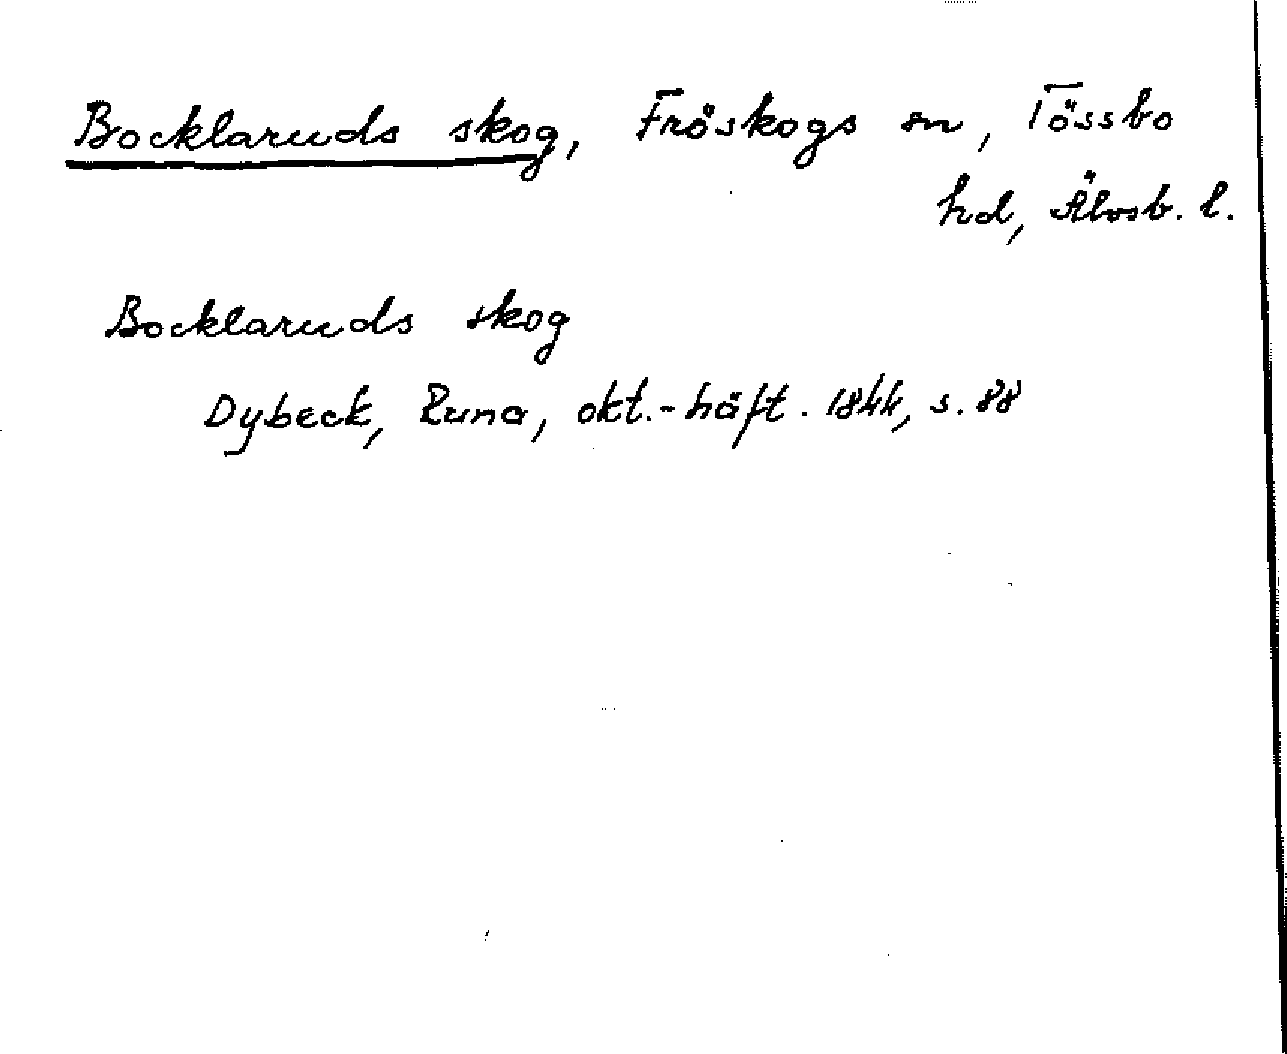 Bocklaruds skog, Fröskogs sn, Tössbo
hd, Älvsb. l.
Bocklaruds skog
Dybeck, Runa, okt.-häft. 1844, s. 88